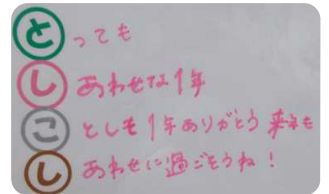 とっても
しあわせな1年
ことしも1年ありがとう来年も
しあわせに過ごそうね！